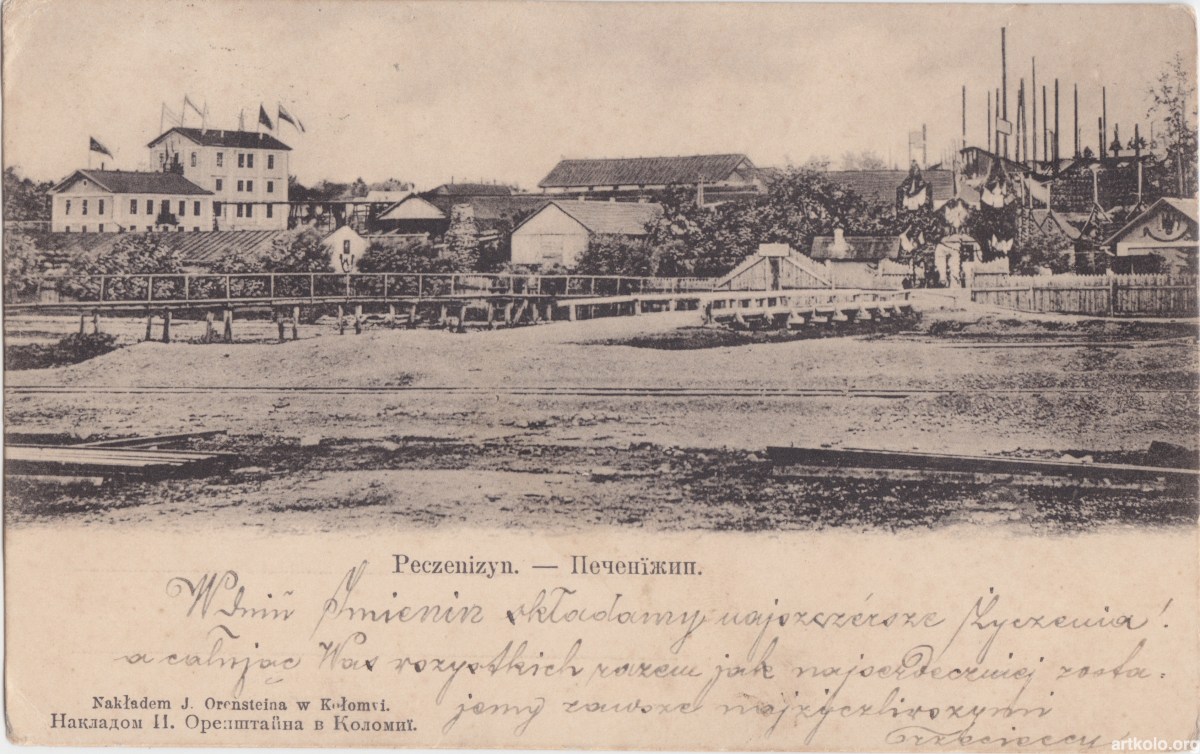 Peczenizyn. — Печенїжин.
W dniu Imienin składamy najszczérsze Życzenia!
a całując Was wszystkich razem jak najserdeczniej zosta-
jemy zawsze najżyczliwszymi
Nakładem J. Orensteina w Kołomyi.
Накладом И. Оренштайна в Коломиї.
artkolo.org